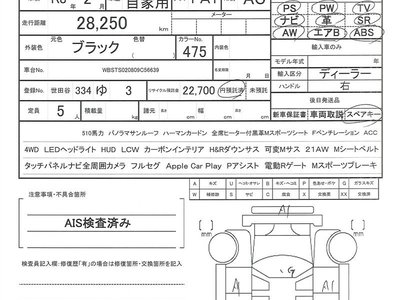 R6 2 自家用 FAT AC
走行距離 28,250 km メーター
PS PW TV
ナビ 革 SR
AW エアB ABS
外装色 ブラック カラーNo 475
輸入車のみ
内装色
輸入区分 ディーラー
車台No WBSTS020809C56639
ハンドル 右
登録No 世田谷 334 ゆ 3 リサイクル預託金 22,700 円預託済 未預託
後日発送品
定員 5 人 積載量 kg 諸元 cm cm cm 新車保証書 車両取説 スペアキー
510馬力 パノラマサンルーフ ハーマンカードン 全席ヒーター付黒革Mスポーツシート Fベンチレーション ACC
4WD LEDヘッドライト HUD LCW カーボンインテリア H&Rダウンサス 可変Mサス 21AW Mシートベルト
タッチパネルナビ全周囲カメラ フルセグ Apple Car Play Pアシスト 電動Rゲート Mスポーツブレーキ
注意事項・不具合箇所
AIS検査済み
検査員記入欄:修復歴「有」の場合は修復箇所・交換箇所を記入
A1
G
A1